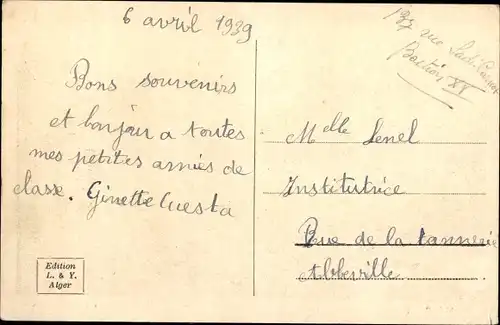 6 avril 1939
137 rue
Bastion XV
Bons souvenirs
et bonjour a toutes
mes petites amies de
classe. Ginette Cuesta
Melle Lenel
Institutrice
Rue de la tannerie
Abbeville
Edition
L. & Y.
Alger